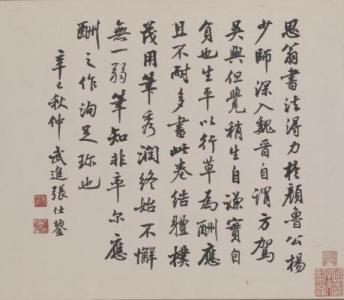 思翁書法得力於顏魯公楊
少師深入魏晉自謂方駕
吳興但覺稍生自謙實自
負也生平以行草為酬應
且不耐多書此卷結體樸
茂用筆秀潤終始不懈
無一弱筆知非率尔應
酬之作洵足珍也
辛巳秋仲武進張仕鋆